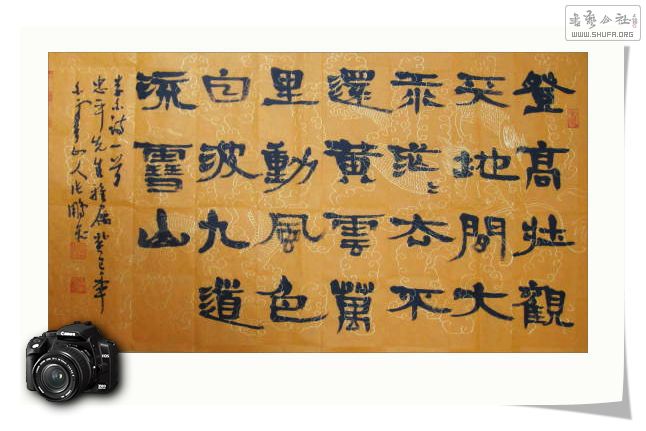 登高壯觀
天地間大
汞茫〻去不
還黃雲萬
里動風色
白波九道
流雪山
詩一首
忠平先生雅屬
山人
書藝公社
WWW.SHUFA.ORG
Canon
EOS